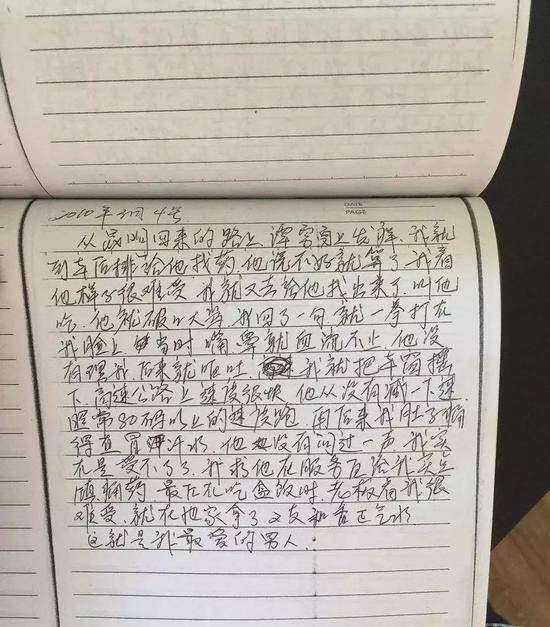 DATE
PAGE
2010年3月4号
从昆明回来的路上谭富商上发烧,我就
到车后排给他找药,他说不好就算了我看
他样子很难受 我就又去给他找出来了,叫他
吃,他就破口大骂 我回了一句就一拳打在
我脸上 当时嘴鼻就血流不止,他没
有理我,后来就呕吐 我就把车窗摇
下,高速公路上速度很快 他从没有减一下速
照常80码以上的速度跑,再后来我肚子痛
得直冒汗水,他也没有问过一声,我实
在是受不了了,我求他在服务区给我买点
痛药 最后在吃盒饭时,老板看我很
难受,就在她家拿了 和香正气水
这就是我最爱的男人: